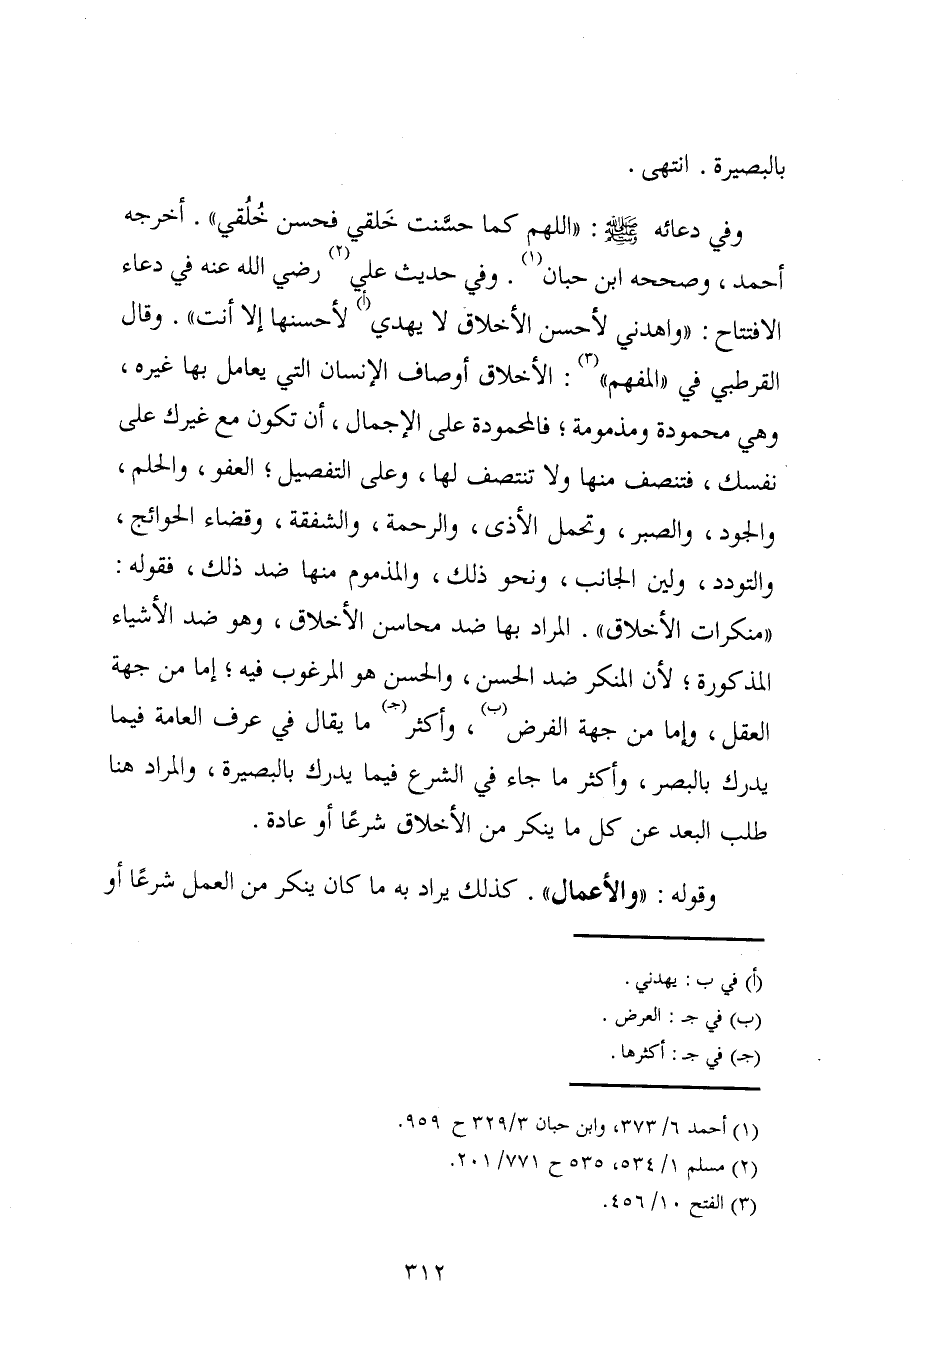 بالبصيرة . انتهى .
وفي دعائه ﷺ : «اللهم كما حسَّنت خَلقي فحسن خُلُقي» . أخرجه
أحمد ، وصححه ابن حبان(١) . وفي حديث علي(٢) رضي الله عنه في دعاء
الافتتاح : «واهدني لأحسن الأخلاق لا يهدي(أ) لأحسنها إلا أنت» . وقال
القرطبي في «المفهم»(٣) : الأخلاق أوصاف الإنسان التي يعامل بها غيره ،
وهي محمودة ومذمومة ؛ فالمحمودة على الإجمال ، أن تكون مع غيرك على
نفسك ، فتنصف منها ولا تنتصف لها ، وعلى التفصيل ؛ العفو ، والحلم ،
والجود ، والصبر ، وتحمل الأذى ، والرحمة ، والشفقة ، وقضاء الحوائج ،
والتودد ، ولين الجانب ، ونحو ذلك ، والمذموم منها ضد ذلك ، فقوله :
«منكرات الأخلاق» . المراد بها ضد محاسن الأخلاق ، وهو ضد الأشياء
المذكورة ؛ لأن المنكر ضد الحسن ، والحسن هو المرغوب فيه ؛ إما من جهة
العقل ، وإما من جهة الفرض(ب) ، وأكثر(جـ) ما يقال في عرف العامة فيما
يدرك بالبصر ، وأكثر ما جاء في الشرع فيما يدرك بالبصيرة ، والمراد هنا
طلب البعد عن كل ما ينكر من الأخلاق شرعًا أو عادة .
وقوله : «والأعمال» . كذلك يراد به ما كان ينكر من العمل شرعًا أو
(أ) في ب : يهدني .
(ب) في جـ : العرض .
(جـ) في جـ : أكثرها .
(١) أحمد ٦/ ٣٧٣، وابن حبان ٣/ ٣٢٩ ح ٩٥٩.
(٢) مسلم ١/ ٥٣٤، ٥٣٥ ح ٧٧١/ ٢٠١.
(٣) الفتح ١٠/ ٤٥٦.
٣١٢